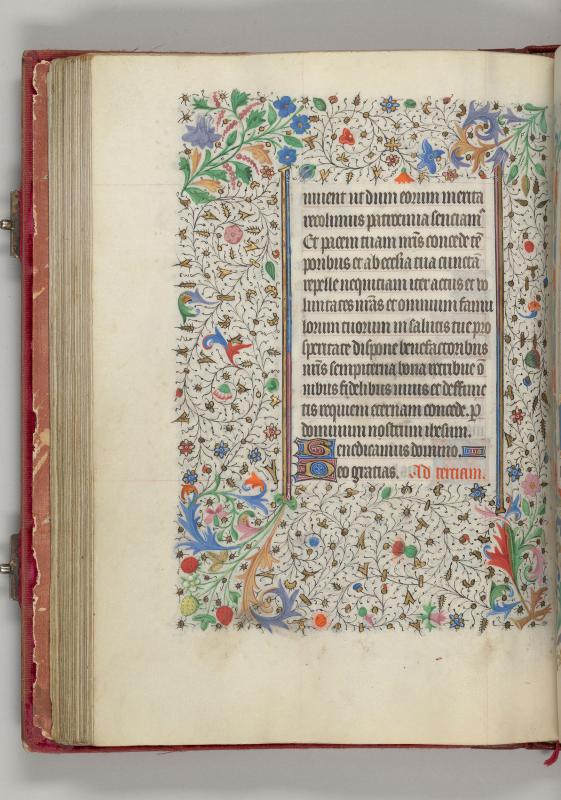 iuuent ut dum eorum merita
recolimus patrocinia senciam᷒
Et pacem tuam nr̄is concede tē
poribus et ab ecc̄ia tua cunctā
repelle nequitiam iter actus et vo
luntates nr̄as et omnium famu
lorum tuorum in salutis tue pro
speritate dispone benefactoribus
nr̄is sempiterna bona retribue ō
nibus fidelibus uiuis et deffunc
tis requiem eternam concede. ꝑ
dominum nostrum ihesum.
Benedicamus domino.
Deo gratias. Ad terciam.